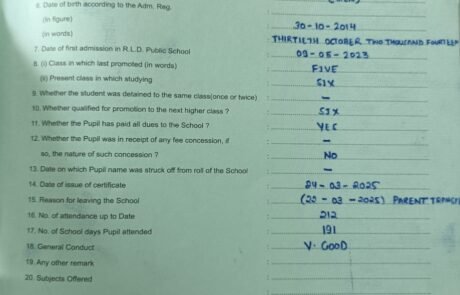 6. Date of birth according to the Adm. Reg.
(in figure) 30-10-2014
(in words) THIRTIETH OCTOBER TWO THOUSAND FOURTEEN
7. Date of first admission in R.L.D. Public School 09-05-2023
8. (i) Class in which last promoted (in words) FIVE
(ii) Present class in which studying SIX
9. Whether the student was detained to the same class(once or twice) –
10. Whether qualified for promotion to the next higher class ? SIX
11. Whether the Pupil has paid all dues to the School ? YES
12. Whether the Pupil was in receipt of any fee concession, if –
so, the nature of such concession ? NO
13. Date on which Pupil name was struck off from roll of the School –
14. Date of issue of certificate 24-03-2025
15. Reason for leaving the School (20-03-2025) PARENT
16. No. of attendance up to Date 212
17. No. of School days Pupil attended 191
18. General Conduct V. GOOD
19. Any other remark
20. Subjects Offered